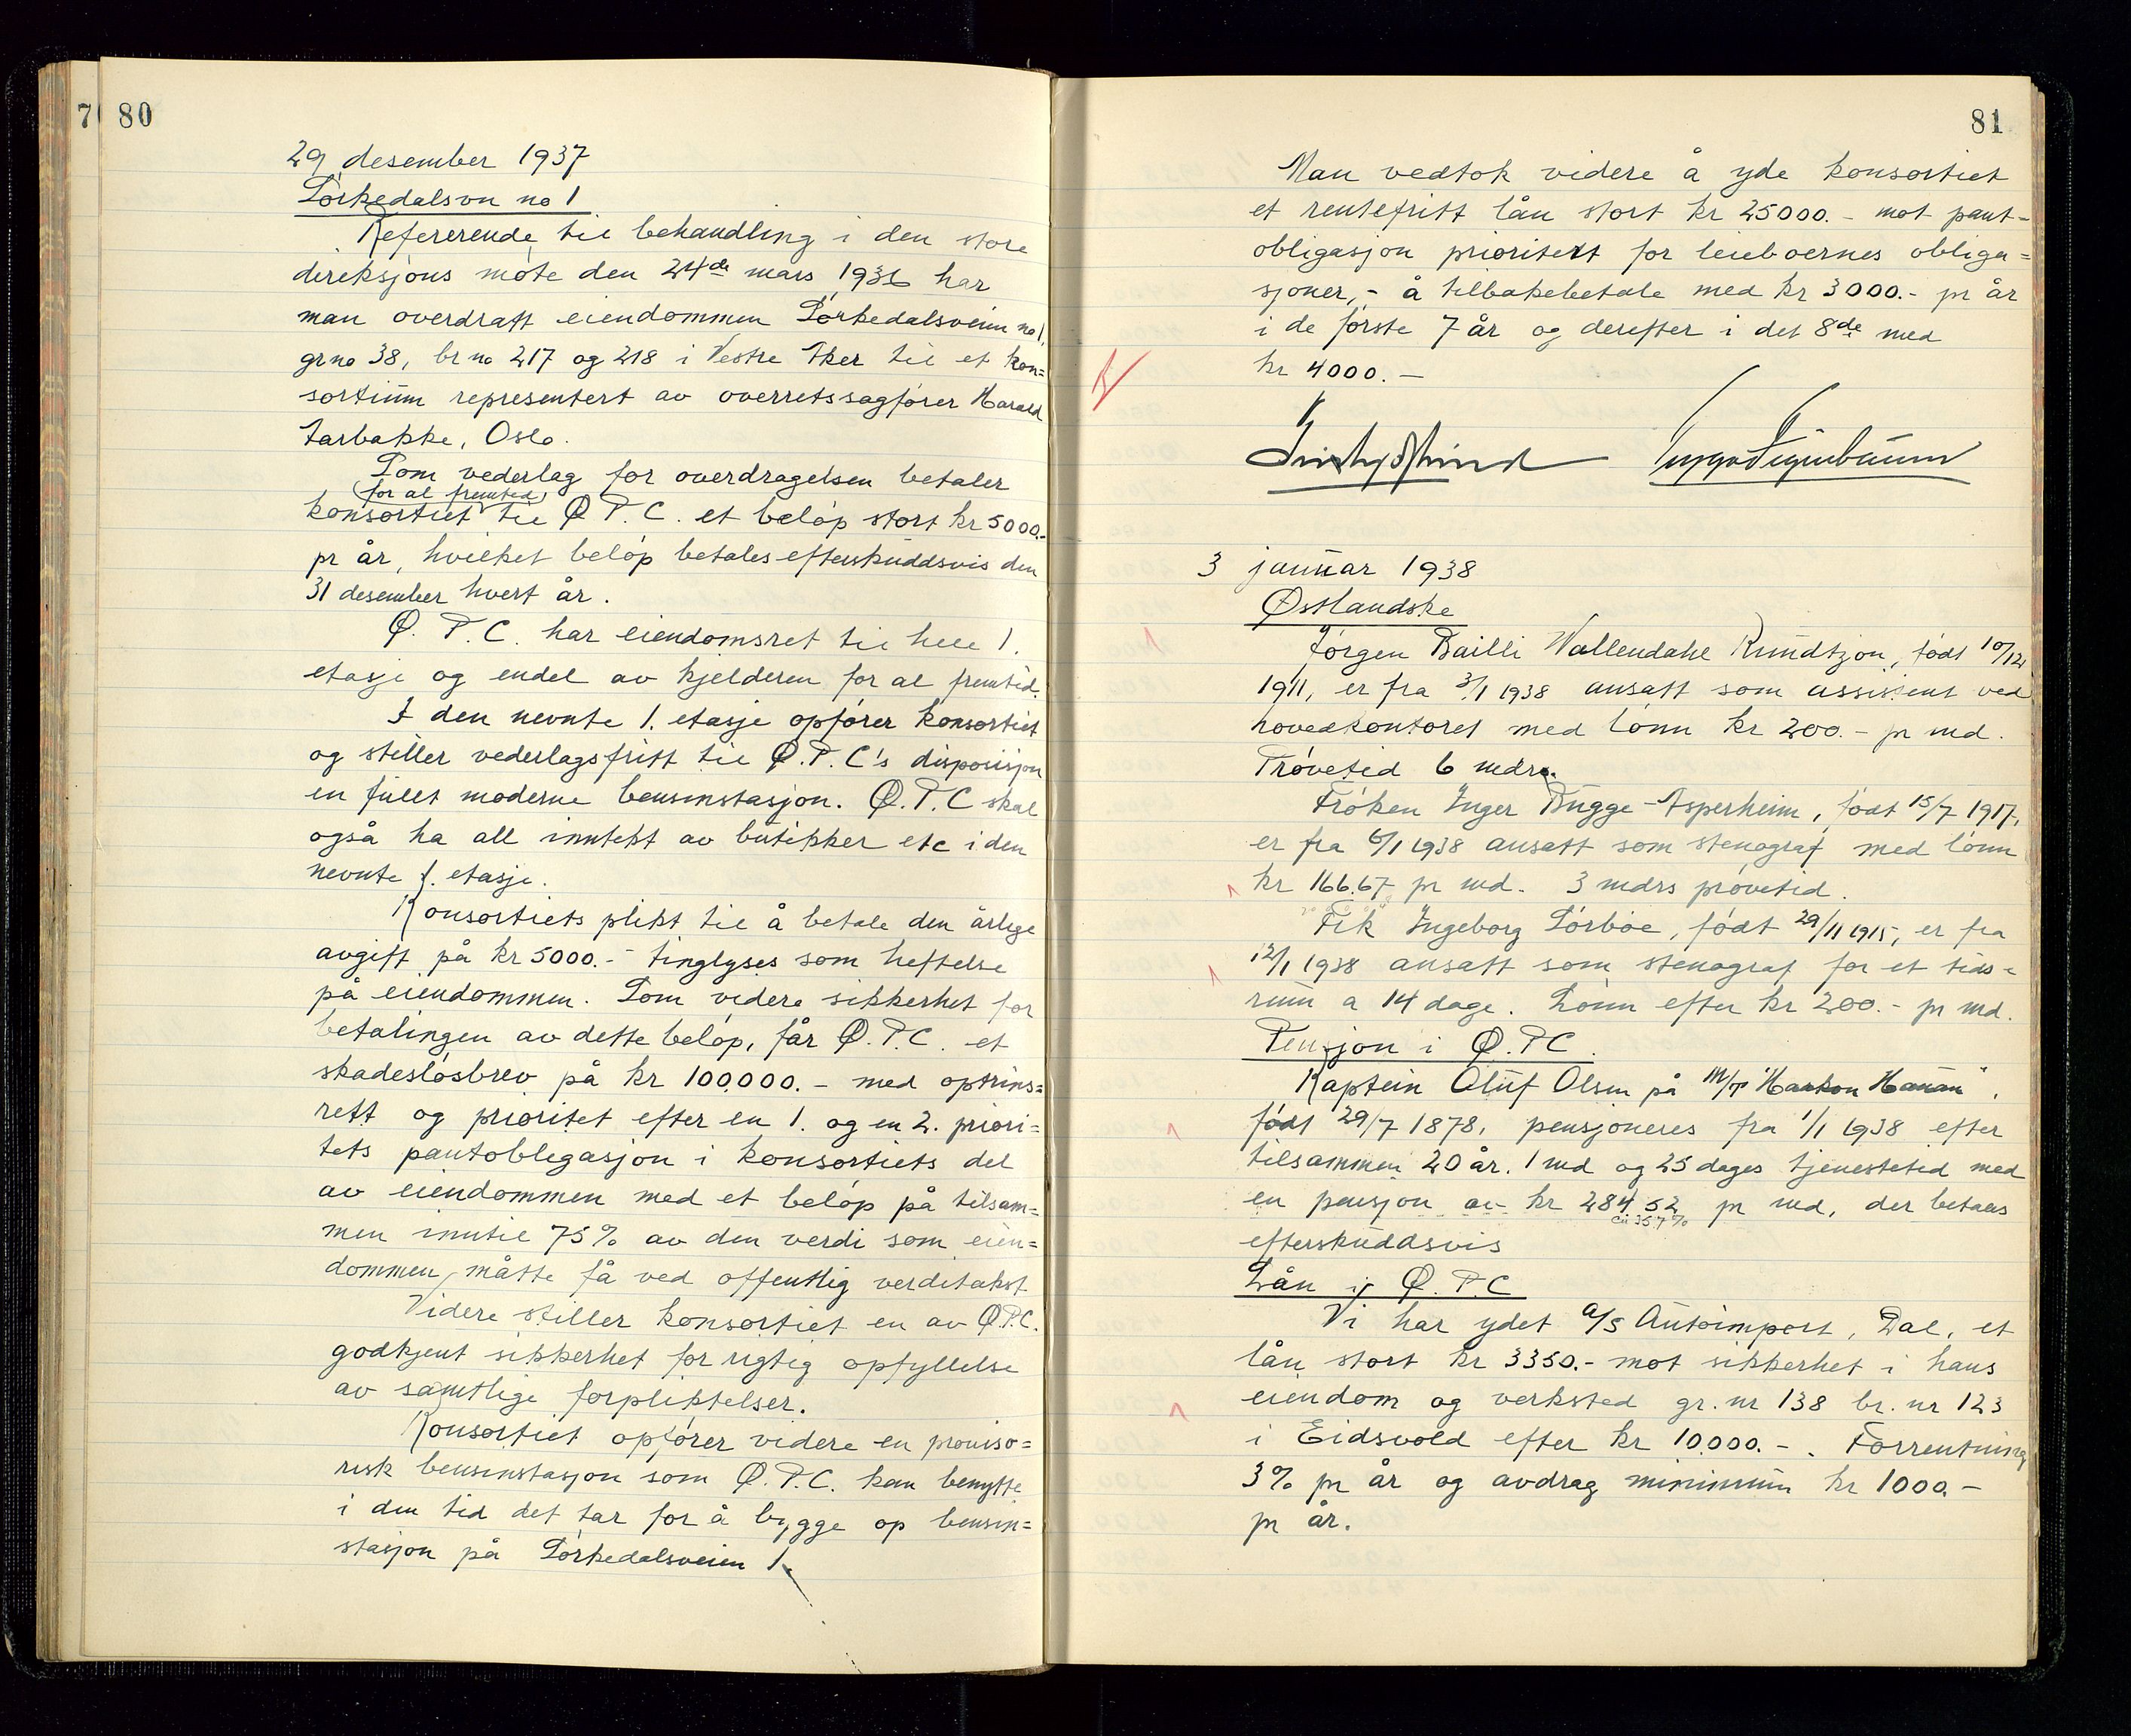 7 80
29 desember 1937
Sørkedalsvn no 1
Refererende til behandling i den store
direksjons møte den 24de mars 1936 har
man overdratt eiendommen Sørkedalsveien no 1,
gr no 38, br no 217 og 218 i Vestre Aker til et kon=
sortium representert av overretssagfører Harald
Aarbakke, Oslo.
Som vederlag for overdragelsen betaler
(for al fremtid)
konsortiet til Ø.P.C. et beløp stort kr 5000.-
pr år, hvilket beløp betales efterskuddsvis den
31 desember hvert år.
Ø.P.C. har eiendomsret til hele 1.
etasje og endel av kjelderen for al fremtid.
I den nevnte 1. etasje opfører konsortiet
og stiller vederlagsfritt til Ø.P.C's disposisjon
en fullt moderne bensinstasjon. Ø.P.C skal
også ha all inntekt av butikker etc i den
nevnte 1. etasje.
Konsortiets plikt til å betale den årlige
avgift på kr 5000.- tinglyses som heftelse
på eiendommen. Som videre sikkerhet for
betalingen av dette beløp, får Ø.P.C. et
skadesløsbrev på kr 100.000.- med optrins=
rett og prioritet efter en 1. og en 2. priori=
tets pantobligasjon i konsortiets del
av eiendommen med et beløp på tilsam=
men inntil 75% av den verdi som eien=
dommen måtte få ved offentlig verditakst
Videre stiller konsortiet en av Ø.P.C.
godkjent sikkerhet for rigtig opfyllelse
av samtlige forpliktelser.
Konsortiet opfører videre en proviso=
risk bensinstasjon som Ø.P.C. kan benytte
i den tid det tar for å bygge op bensin=
stasjon på Sørkedalsveien 1.
81
Man vedtok videre å yde konsortiet
et rentefritt lån stort kr 25000.- mot pant=
obligasjon prioritert for leieboernes obliga=
sjoner,- å tilbakebetale med kr 3000.- pr år
i de første 7 år og derefter i det 8de med
kr 4000.-
3 januar 1938
Østlandske
Jørgen Bailli Wallendahl Knudtzon, født 10/12
1911, er fra 3/1 1938 ansatt som assistent ved
hovedkontoret med lønn kr 200.- pr md.
Prøvetid 6 mdr.
Frøken Inger Bugge-Asperheim, født 15/7 1917,
er fra 6/1 1938 ansatt som stenograf med lønn
kr 166.67 pr md. 3 mdrs prøvetid.
Frk Ingeborg Sørbøe, født 29/11 1915, er fra
12/1 1938 ansatt som stenograf for et tids=
rum a 14 dage. Lønn efter kr 200.- pr md.
Pensjon i Ø.P.C.
Kaptein Oluf Olsen på M/T "Haakon Hauan",
født 29/7 1878, pensjoneres fra 1/1 1938 efter
tilsammen 20 år. 1 md og 25 dages tjenestetid med
en pensjon av kr 284.52 pr md, der betales
efterskuddsvis
Lån i Ø.P.C
Vi har ydet A/S Autoimport, Dal, et
lån stort kr 3350.- mot sikkerhet i hans
eiendom og verksted gr. nr 138 br. nr 123
i Eidsvold efter kr 10.000.-. Forrentning
3% pr år og avdrag minimum kr 1000.-
pr år.